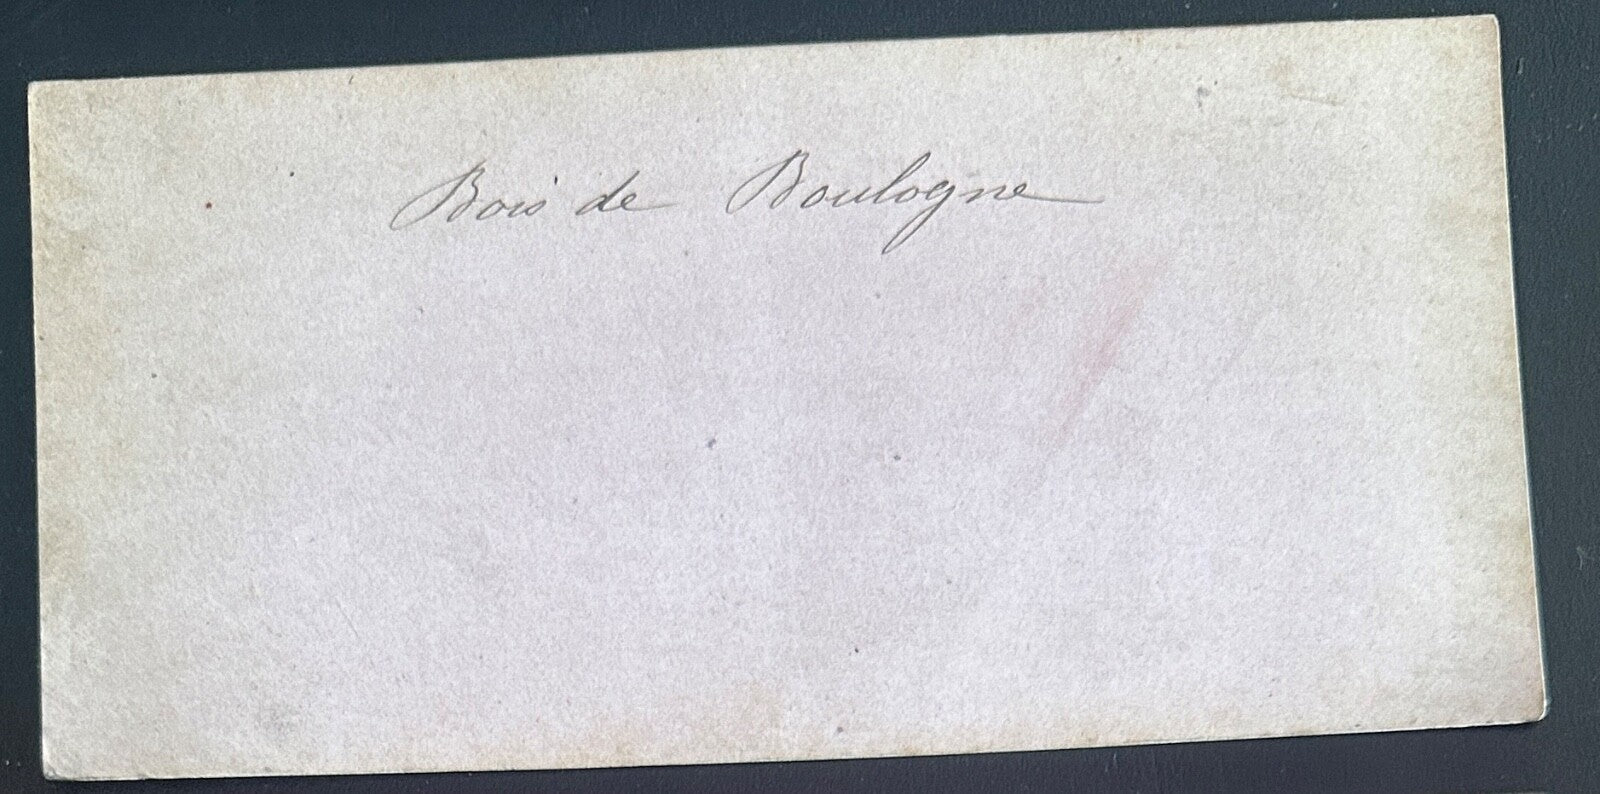 Bois de Boulogne